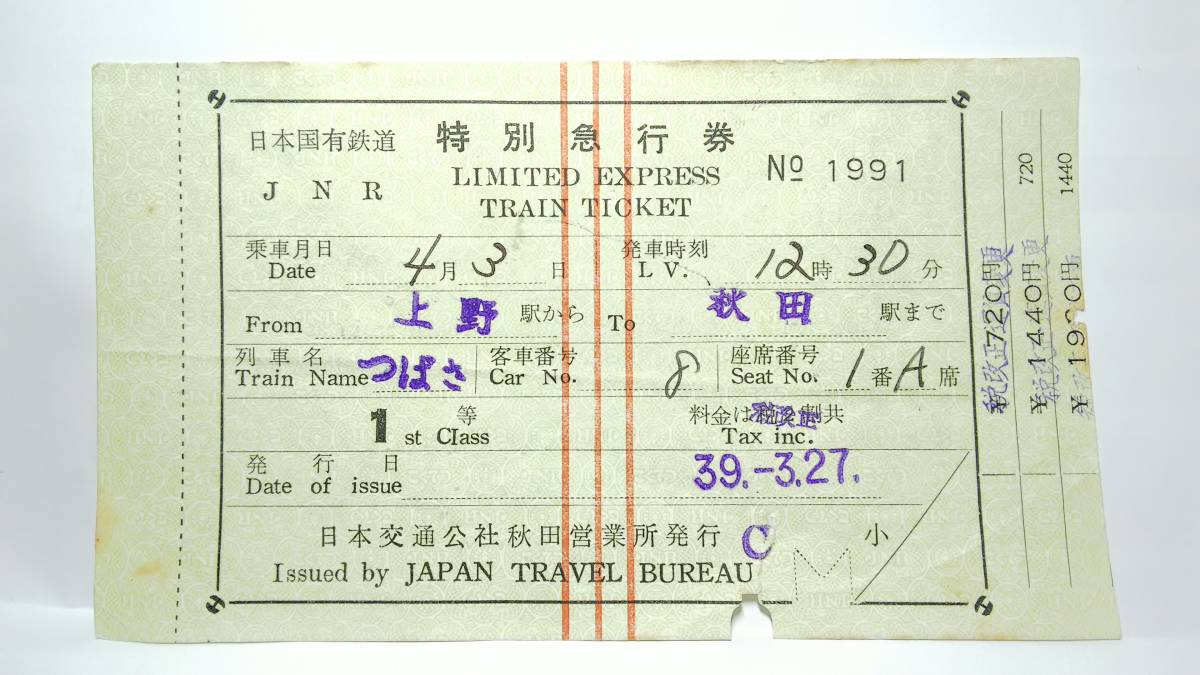 日本国有鉄道 特別急行券
J N R LIMITED EXPRESS No 1991
TRAIN TICKET
乗車月日 4月3日 発車時刻 12時30分
Date L V.
From 上野 駅から To 秋田 駅まで
列車名 つばさ 客車番号 8 座席番号 1番A席
Train Name Car No. Seat No.
1 等 料金は
st Class Tax inc.
発行日 39.-3.27.
Date of issue
日本交通公社秋田営業所発行 C 小
Issued by JAPAN TRAVEL BUREAU
M
720
1440
¥720円
¥1440円
税改正